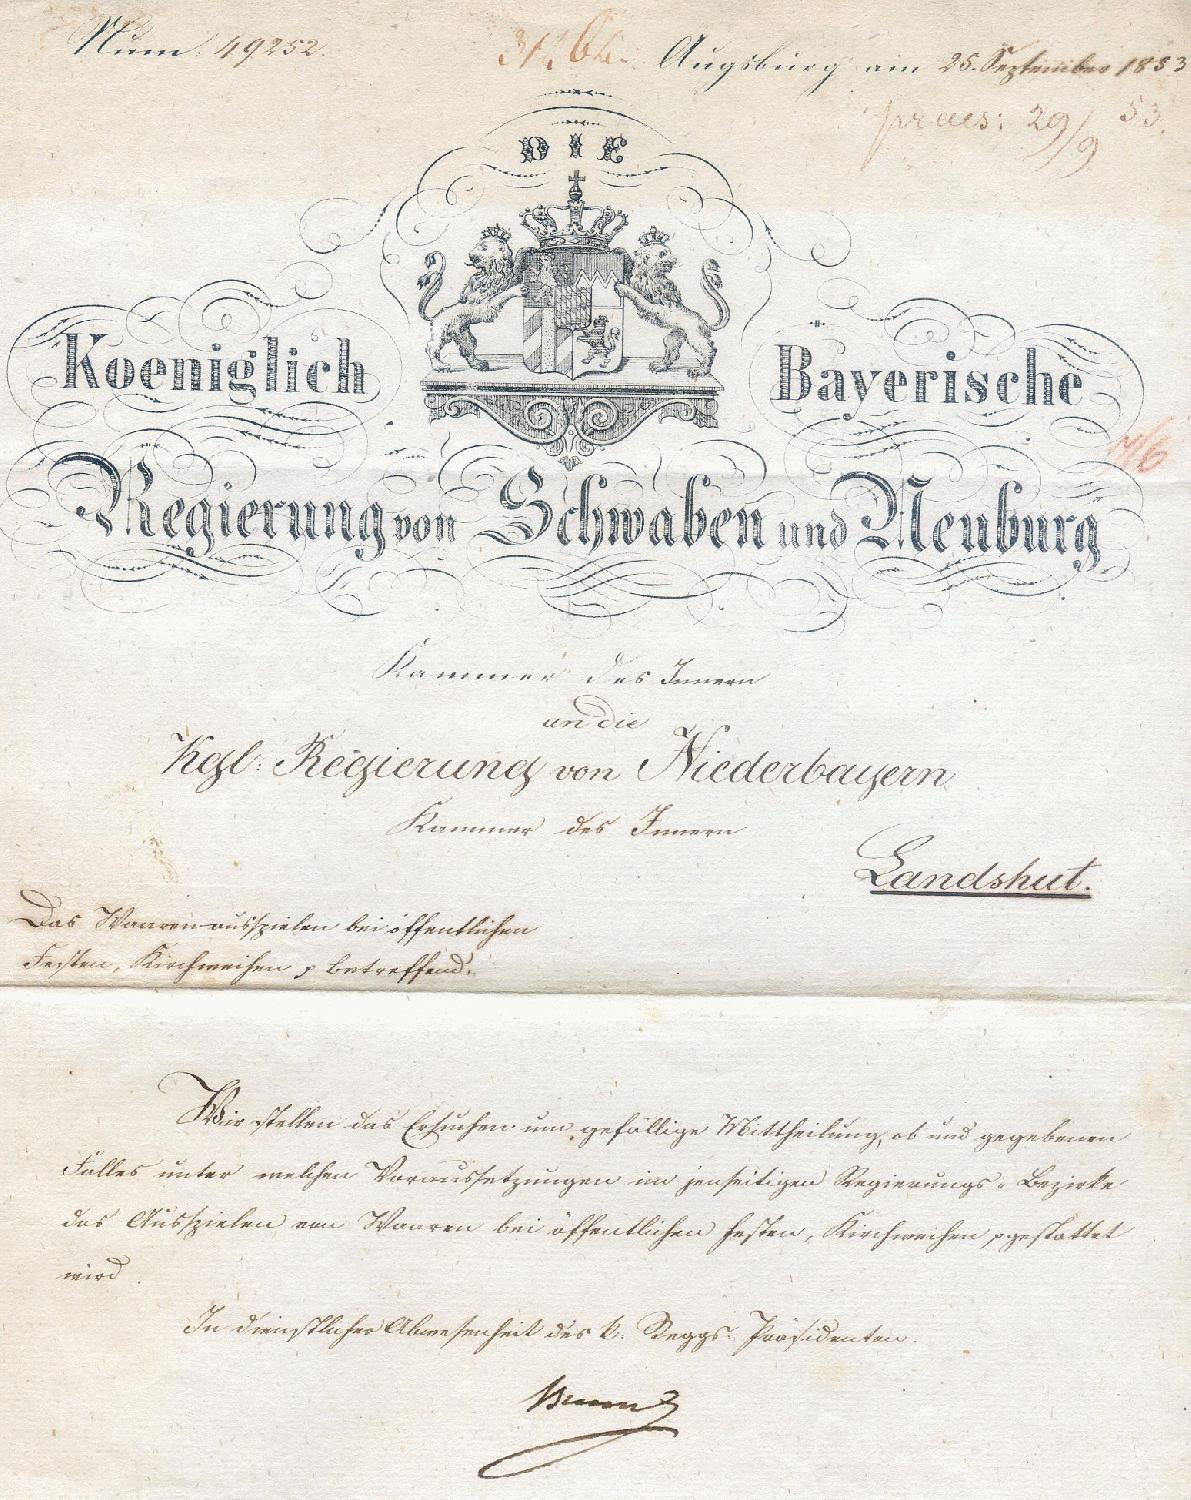 Num. 49252. Augsburg am 25. September 1853
praes: 29/9 53.
DIE
Koeniglich Bayerische
Regierung von Schwaben und Neuburg
Kammer des Innern
an die
Kgl. Regierung von Niederbayern
Kammer des Innern
Landshut.
Das Waarenausspielen bei öffentlichen
Festen, Kirchweihen betreffend.
Wir stellen das Ersuchen um gefällige Mittheilung, ob und gegebenen
Falles unter welchen Voraussetzungen im jenseitigen Regierungs-Bezirke
das Ausspielen von Waaren bei öffentlichen Festen, Kirchweihen gestattet
wird.
In dienstlicher Abwesenheit des k. Reggs. Präsidenten.